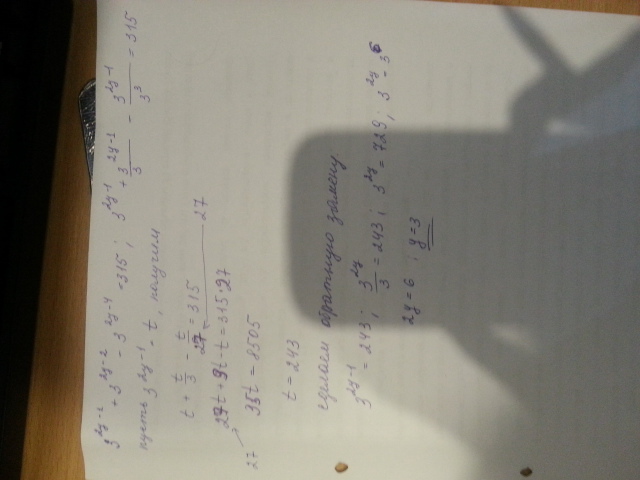 3^{2y-1} + 3^{2y-2} - 3^{2y-4} = 315; 3^{2y-1} + \frac{3^{2y-1}}{3} - \frac{3^{2y-1}}{3^3} = 315
пусть 3^{2y-1} = t, получим
t + \frac{t}{3} - \frac{t}{27} = 315 27
27t + 9t - t = 315·27
27
35t = 8505
t = 243
сделаем обратную замену
3^{2y-1} = 243; \frac{3^{2y}}{3} = 243; 3^{2y} = 729; 3^{2y} = 3^6
2y = 6; y = 3